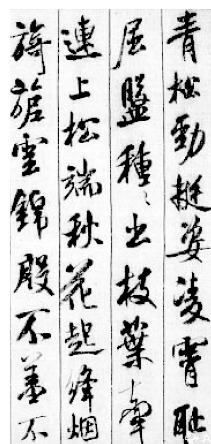 青松勁挺姿凌霄恥
屈盤種〻出枝葉牽
連上松端秋花起絳烟
旖旎雲錦殷不羞不